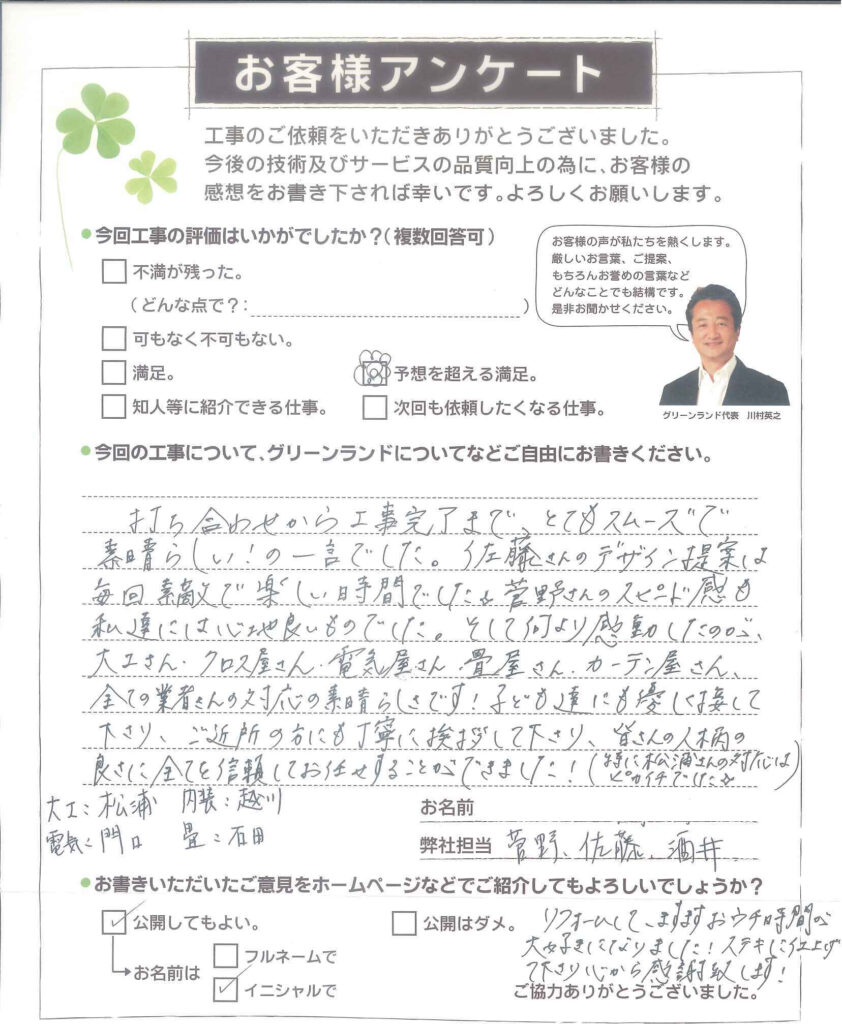 お客様アンケート
工事のご依頼をいただきありがとうございました。
今後の技術及びサービスの品質向上の為に、お客様の
感想をお書き下されば幸いです。よろしくお願いします。
今回工事の評価はいかがでしたか？（複数回答可）
不満が残った。
（どんな点で？： ）
可もなく不可もない。
満足。
予想を超える満足。
知人等に紹介できる仕事。
次回も依頼したくなる仕事。
お客様の声が私たちを熱くします。
厳しいお言葉、ご提案、
もちろんお誉めの言葉など
どんなことでも結構です。
是非お聞かせください。
グリーンランド代表 川村英之
今回の工事について、グリーンランドについてなどご自由にお書きください。
打ち合わせから工事完了まで、とてもスムーズで
素晴らしい！の一言でした。佐藤さんのデザイン提案は
毎回素敵で楽しい時間でした☆菅野さんのスピード感も
私達には心地良いものでした。そして何より感動したのが、
大工さん・クロス屋さん・電気屋さん・畳屋さん・カーテン屋さん、
全ての業者さんの対応の素晴らしさです！子ども達にも優しく接して
下さり、ご近所の方にも丁寧に挨拶して下さり、皆さんの人柄の
良さに全てを信頼してお任せすることができました！（特に松浦さんの対応は
ピカイチでした☆）
大工：松浦 内装：越川
電気：門口 畳：石田
お名前
弊社担当 菅野、佐藤、酒井
お書きいただいたご意見をホームページなどでご紹介してもよろしいでしょうか？
公開してもよい。
公開はダメ。
お名前は
フルネームで
イニシャルで
リフォームして、ますますおウチ時間が
大好きになりました！ステキに仕上げ
て下さり心から感謝致します！
ご協力ありがとうございました。